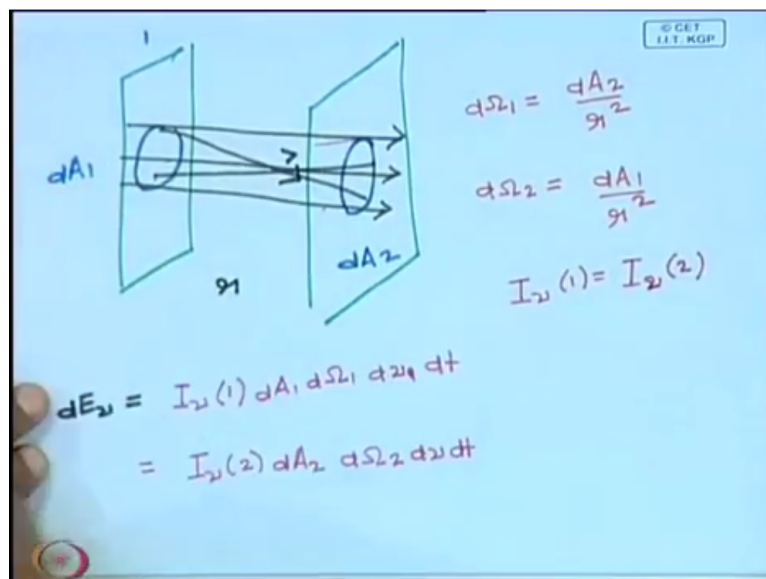 © CET
I.I.T. KGP
1
dA1
r
dA2
dΩ1 = dA2 / r²
dΩ2 = dA1 / r²
Iν (1) = Iν (2)
dEν = Iν (1) dA1 dΩ1 dν dt
= Iν (2) dA2 dΩ2 dν dt